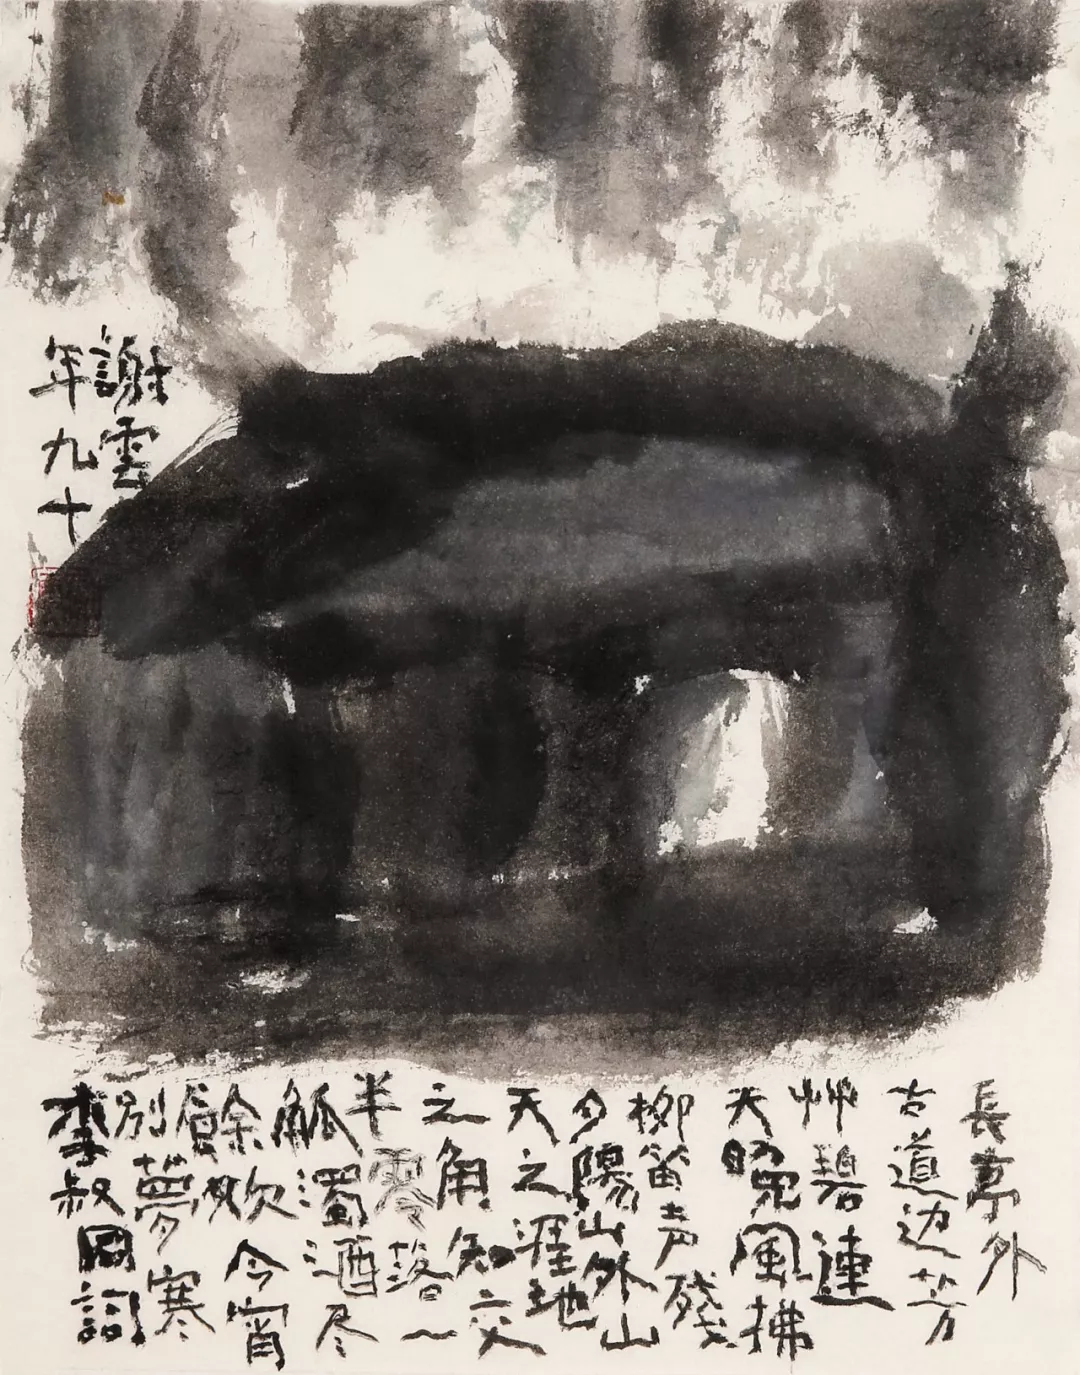 長亭外
古道边芳
艸碧連
天晚風拂
柳笛声殘
夕陽山外山
天之涯地
之角知交
半零落一
觚濁酒尽
餘欢今宵
别夢寒
李叔同詞
謝雲
年九十